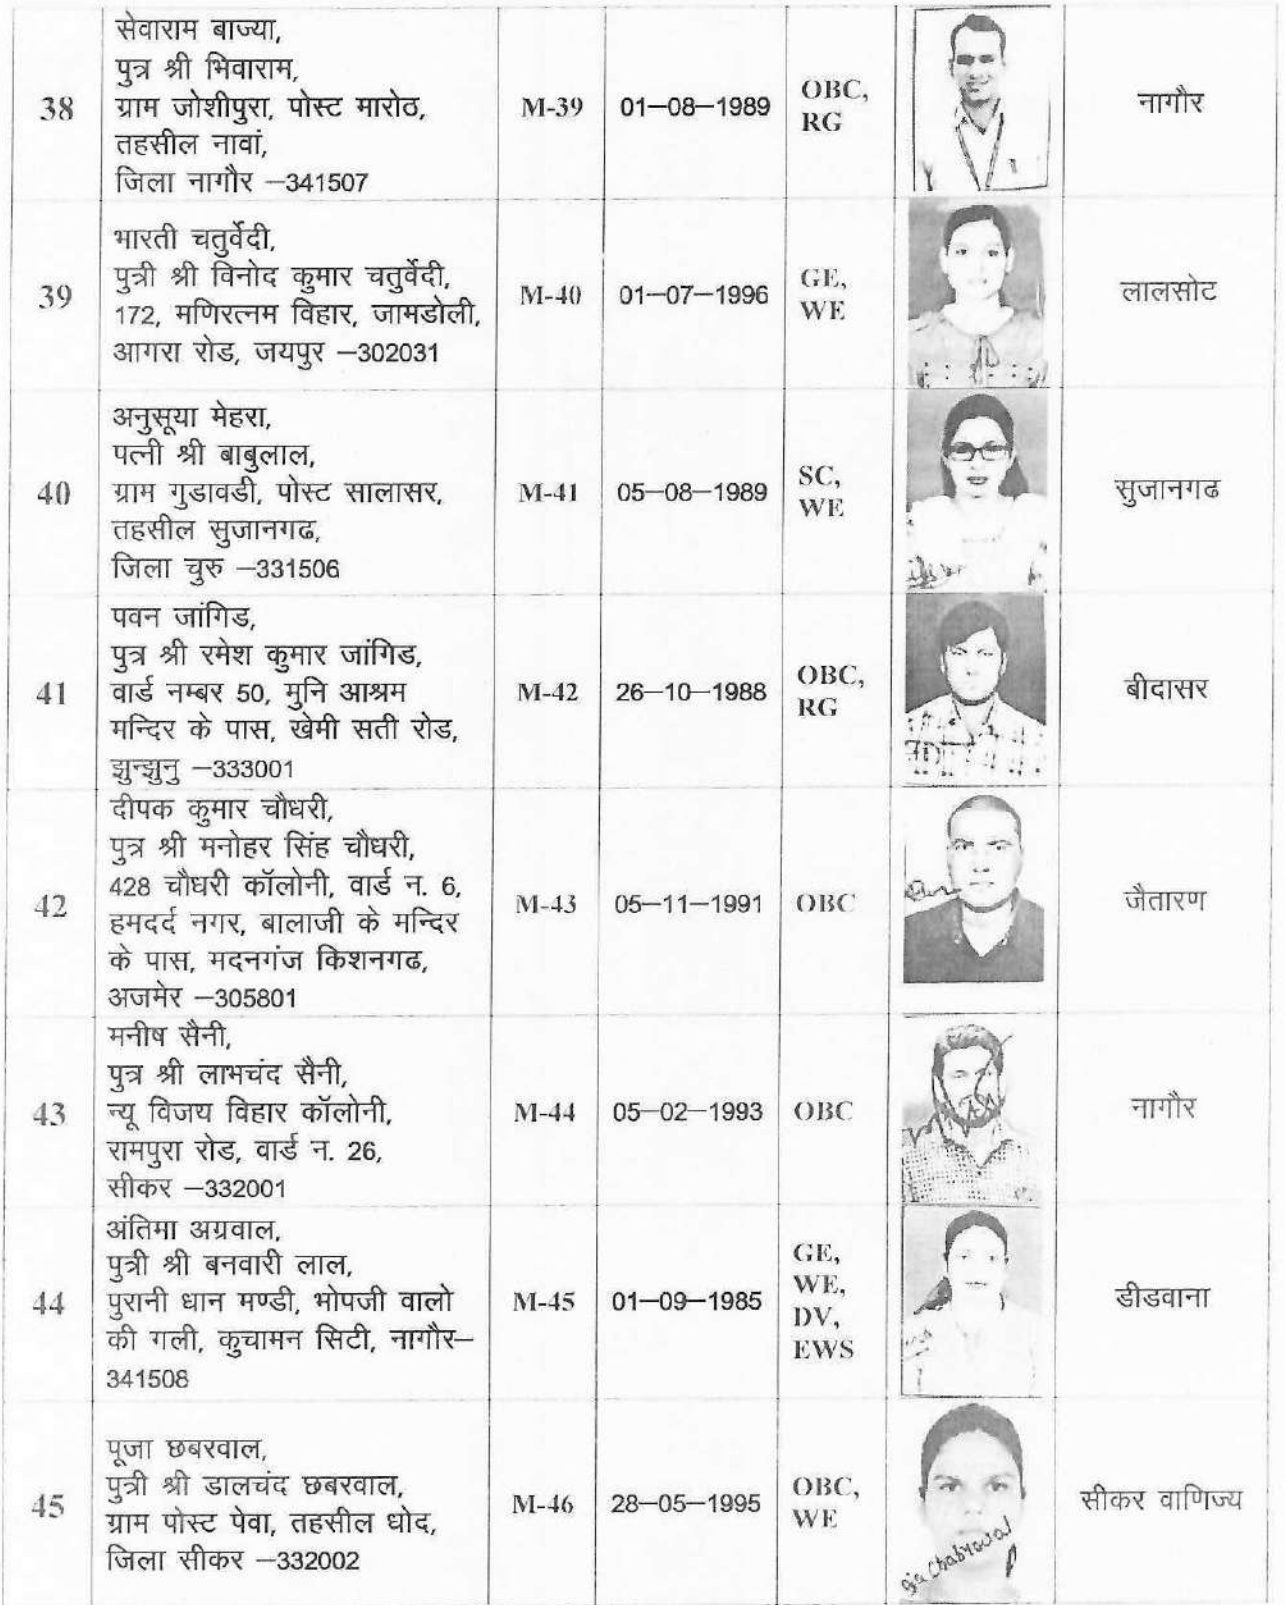 38
सेवाराम बाज्या,
पुत्र श्री भिवाराम,
ग्राम जोशीपुरा, पोस्ट मारोठ,
तहसील नावां,
जिला नागौर –341507
M-39
01–08–1989
OBC,
RG
नागौर
39
भारती चतुर्वेदी,
पुत्री श्री विनोद कुमार चतुर्वेदी,
172, मणिरत्नम विहार, जामडोली,
आगरा रोड, जयपुर –302031
M-40
01–07–1996
GE,
WE
लालसोट
40
अनुसूया मेहरा,
पत्नी श्री बाबुलाल,
ग्राम गुडावडी, पोस्ट सालासर,
तहसील सुजानगढ,
जिला चुरु –331506
M-41
05–08–1989
SC,
WE
सुजानगढ
41
पवन जांगिड,
पुत्र श्री रमेश कुमार जांगिड,
वार्ड नम्बर 50, मुनि आश्रम
मन्दिर के पास, खेमी सती रोड,
झुन्झुनु –333001
M-42
26–10–1988
OBC,
RG
बीदासर
42
दीपक कुमार चौधरी,
पुत्र श्री मनोहर सिंह चौधरी,
428 चौधरी कॉलोनी, वार्ड न. 6,
हमदर्द नगर, बालाजी के मन्दिर
के पास, मदनगंज किशनगढ,
अजमेर –305801
M-43
05–11–1991
OBC
जैतारण
43
मनीष सैनी,
पुत्र श्री लाभचंद सैनी,
न्यू विजय विहार कॉलोनी,
रामपुरा रोड, वार्ड न. 26,
सीकर –332001
M-44
05–02–1993
OBC
नागौर
44
अंतिमा अग्रवाल,
पुत्री श्री बनवारी लाल,
पुरानी धान मण्डी, भोपजी वालो
की गली, कुचामन सिटी, नागौर–
341508
M-45
01–09–1985
GE,
WE,
DV,
EWS
डीडवाना
45
पूजा छबरवाल,
पुत्री श्री डालचंद छबरवाल,
ग्राम पोस्ट पेवा, तहसील धोद,
जिला सीकर –332002
M-46
28–05–1995
OBC,
WE
Chabrawal
सीकर वाणिज्य